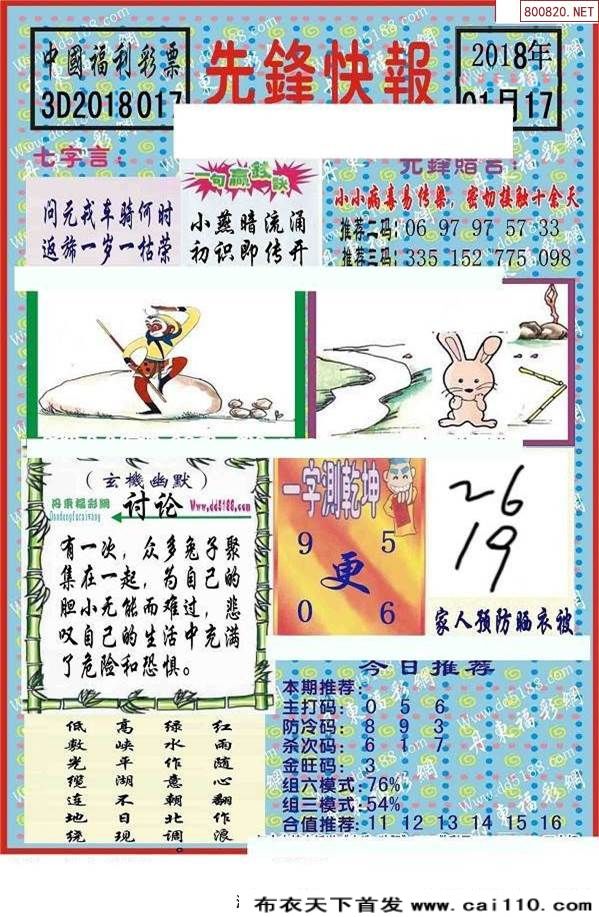 800820.NET
中國福利彩票
3D2018017
先鋒快報
2018年
01月17
七字言：
问元戎车骑何时
返旆一岁一枯荣
一句赢錢訣
小燕暗流涌
初识即传开
先鋒賠言：
小小病毒易传染，密切接触十余天
推荐二码：06 97 97 57 33
推荐三码：335 152 775 098
（玄機幽默）
丹東福彩網
Dandongfucaiwang
讨论
Www.dd5188.com
有一次，众多兔子聚
集在一起，为自己的
胆小无能而难过，悲
叹自己的生活中充满
了危险和恐惧。
一字測乾坤
9 5
更
0 6
26
19
家人预防晒衣被
红雨随心翻作浪
绿水作意朝北调。
高峡平湖不日现
低数光缆连地绕
今日推荐
本期推荐：
主打码： 0 5 6
防冷码： 8 9 3
杀次码： 6 1 7
金旺码： 3
组六模式：76%
组三模式：54%
合值推荐：11 12 13 14 15 16
布衣天下首发 www.cai110.com